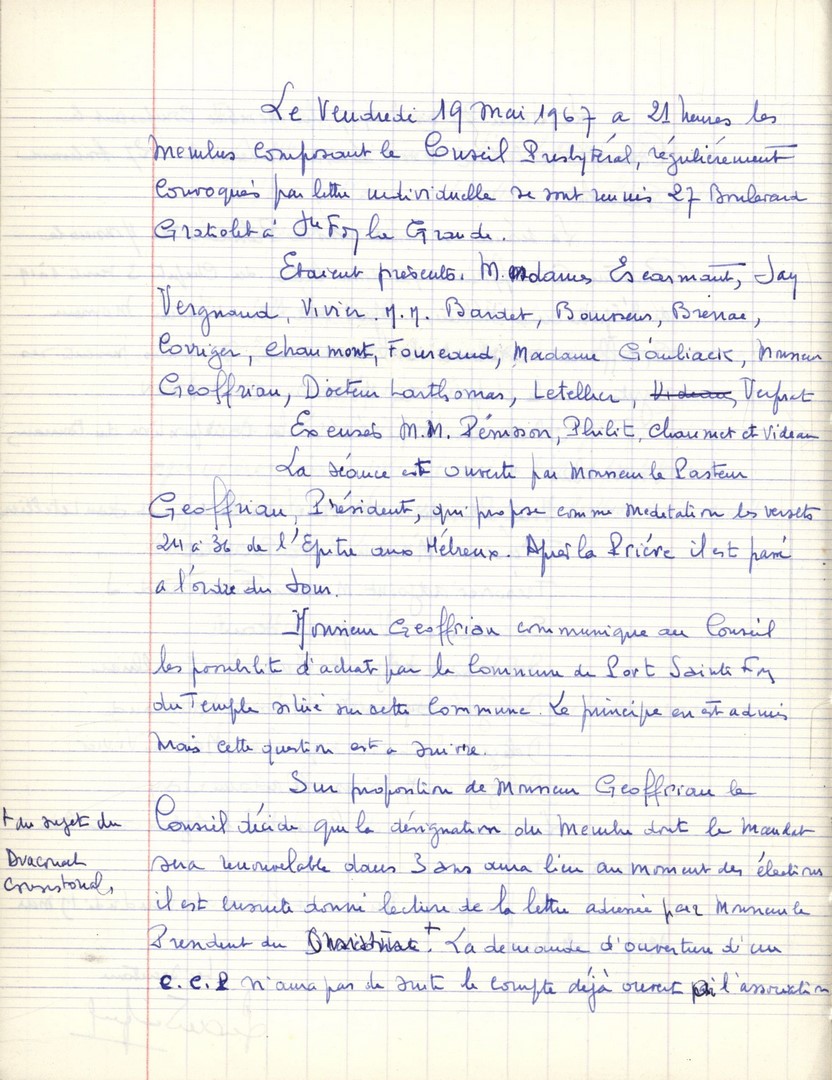 Le Vendredi 19 Mai 1967 a 21 heures les
membres composant le Conseil Presbytéral, régulièrement
convoqués par lettre individuelle se sont reunis 27 Boulevard
Gratiolet à Ste Foy la Grande.
Etaient présents. Mesdames Escarmant, Jay
Vergnaud, Vivier. M.M. Bardet, Bousseus, Brenac,
Corriger, Chaumont, Fourcaud, Madame Gouliack, Monsieur
Geoffriau, Docteur Larthomas, Letellier, Videau, Verfrat
Excusés M.M. Pénisson, Philit, Chaumet et Videau
La séance est ouverte par Monsieur le Pasteur
Geoffriau, Président, qui propose comme meditation les versets
24 à 36 de l'Epitre aux Hébreux. Après la Prière il est passé
a l'ordre du Jour.
Monsieur Geoffriau communique au Conseil
les possibilité d'achat par la Commune de Port Sainte Foy
du Temple situé sur cette Commune. Le principe en est admis
mais cette question est a suivre.
Sur proposition de Monsieur Geoffriau le
Conseil décide que la désignation du Membre dont le Mandat
sera renouvelable dans 3 ans aura lieu au moment des élections
il est ensuite donné lecture de la lettre adressée par Monsieur le
President du + La demande d'ouverture d'un
C.C.P n'aura pas de suite le compte déjà ouvert l'association
+ au sujet du
Diaconat
Consistorial,